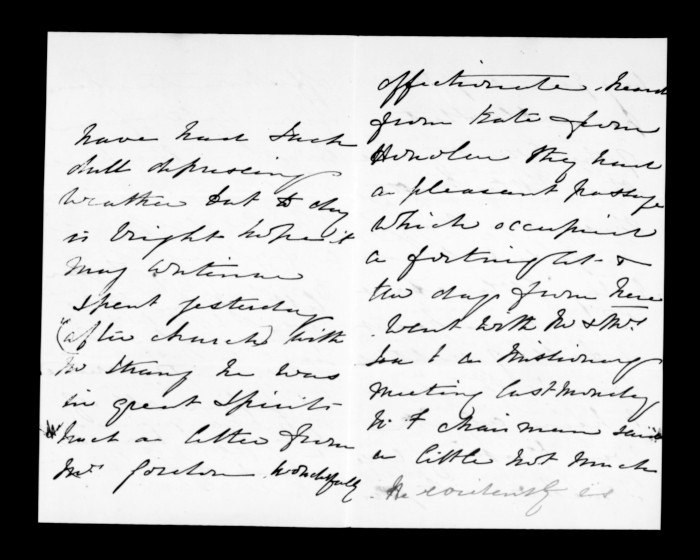 have had such
dull depressing
weather but to day
is bright hope it
may continue
Spent yesterday
(after church) with
Mr Strang he was
in great spirits
had a letter from
Mrs Gordon. wonderfully
affectionate. heard
from Kate & from
Honolulu they had
a pleasant passage
which occupied
a fortnight &
two days from here
Went with Mr & Mrs
to a Missionary
Meeting last Monday
Mr F Chairman said
a little not much
He evidently is